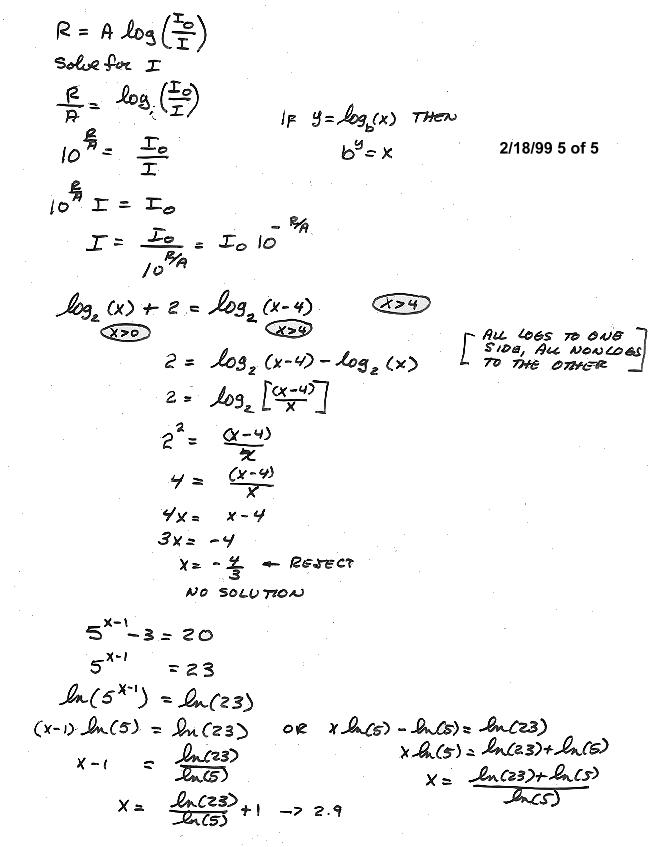 R = A log(I₀/I)
Solve for I
R/A = log(I₀/I)
IF y = log_b(x) THEN
b^y = x
2/18/99 5 of 5
10^(R/A) = I₀/I
10^(R/A) I = I₀
I = I₀/10^(R/A) = I₀ 10^(-R/A)
log₂(x) + 2 = log₂(x-4) x>4
x>0 x>4
[ALL LOGS TO ONE
SIDE, ALL NONLOGS
TO THE OTHER]
2 = log₂(x-4) - log₂(x)
2 = log₂[(x-4)/x]
2² = (x-4)/x
4 = (x-4)/x
4x = x-4
3x = -4
x = -4/3 ← REJECT
NO SOLUTION
5^(x-1) - 3 = 20
5^(x-1) = 23
ln(5^(x-1)) = ln(23)
(x-1) ln(5) = ln(23) OR x ln(5) - ln(5) = ln(23)
x ln(5) = ln(23) + ln(5)
x = (ln(23) + ln(5))/ln(5)
x-1 = ln(23)/ln(5)
x = ln(23)/ln(5) + 1 → 2.9